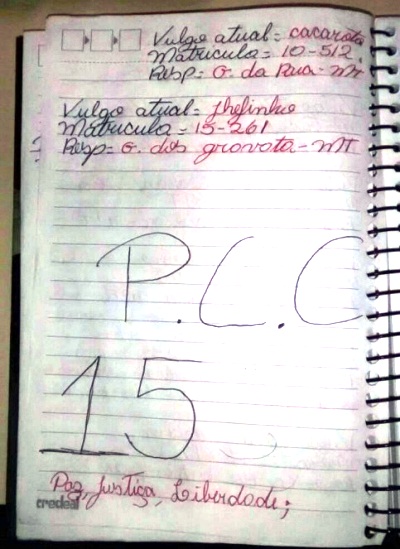 Vulgo atual = cacarota
Matricula = 10-512.
Resp = G. da Rua - MT
Vulgo atual = Jhefinho
Matricula = 15-261
Resp = G. dos gravata - MT
P.C.C
15
Paz, Justiça, Liberdade;
credeal